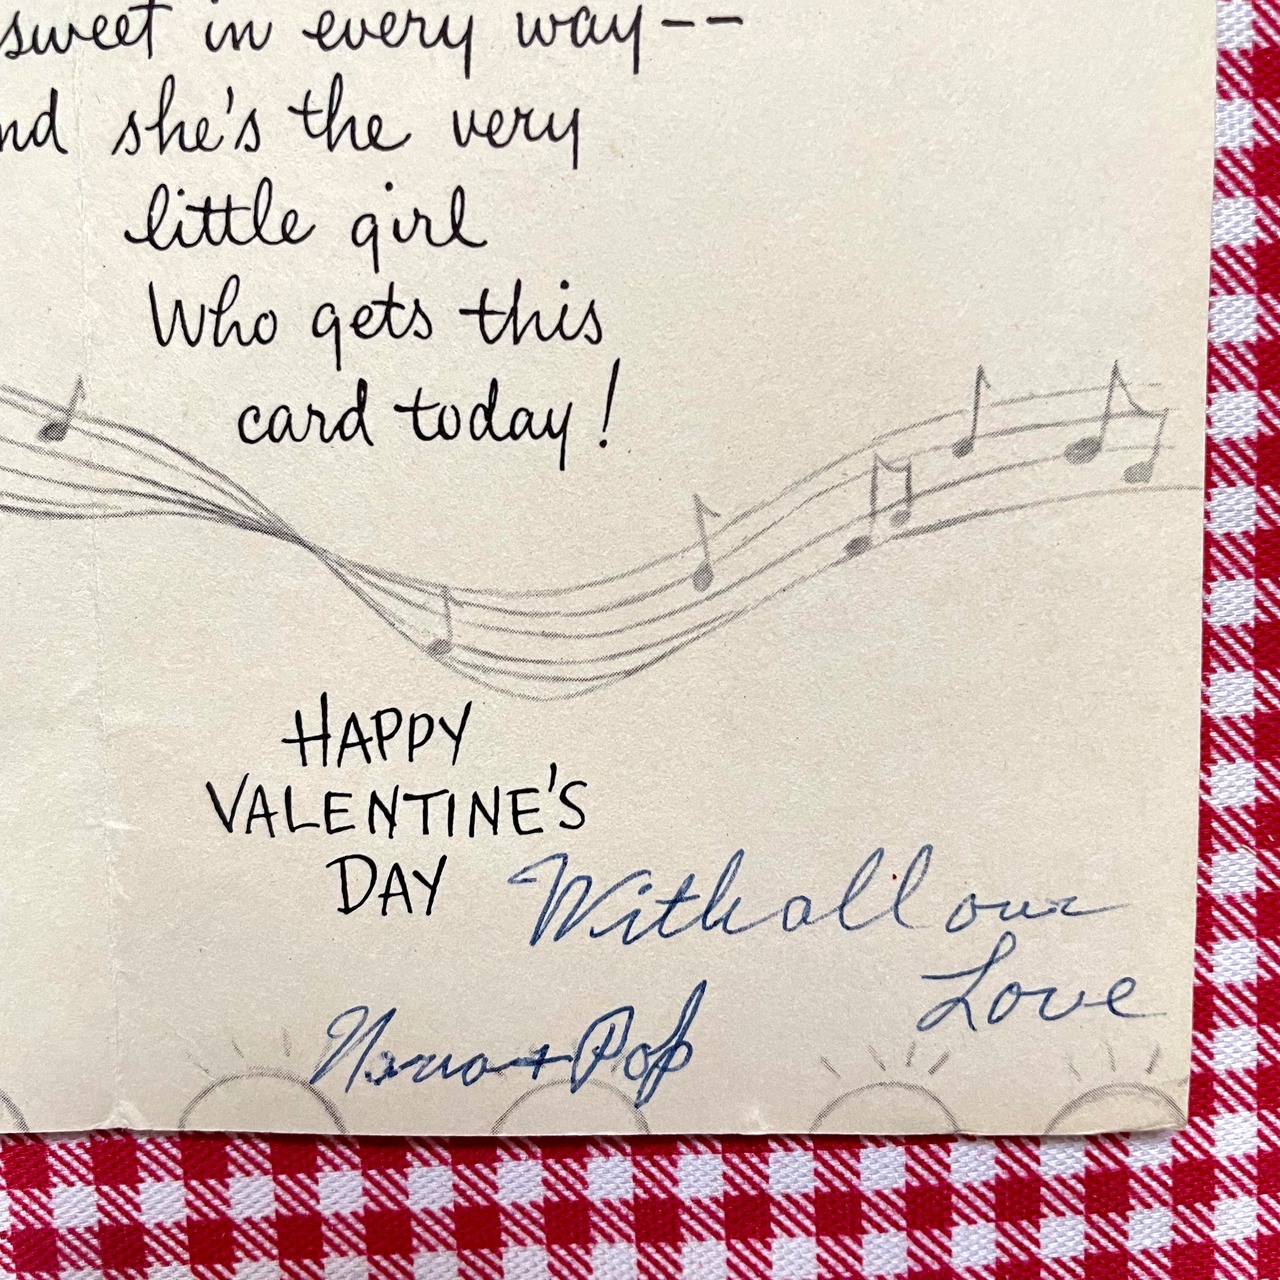 sweet in every way--
nd she's the very
little girl
Who gets this
card today!
HAPPY
VALENTINE'S
DAY
With all our
Love
Nana + Pop